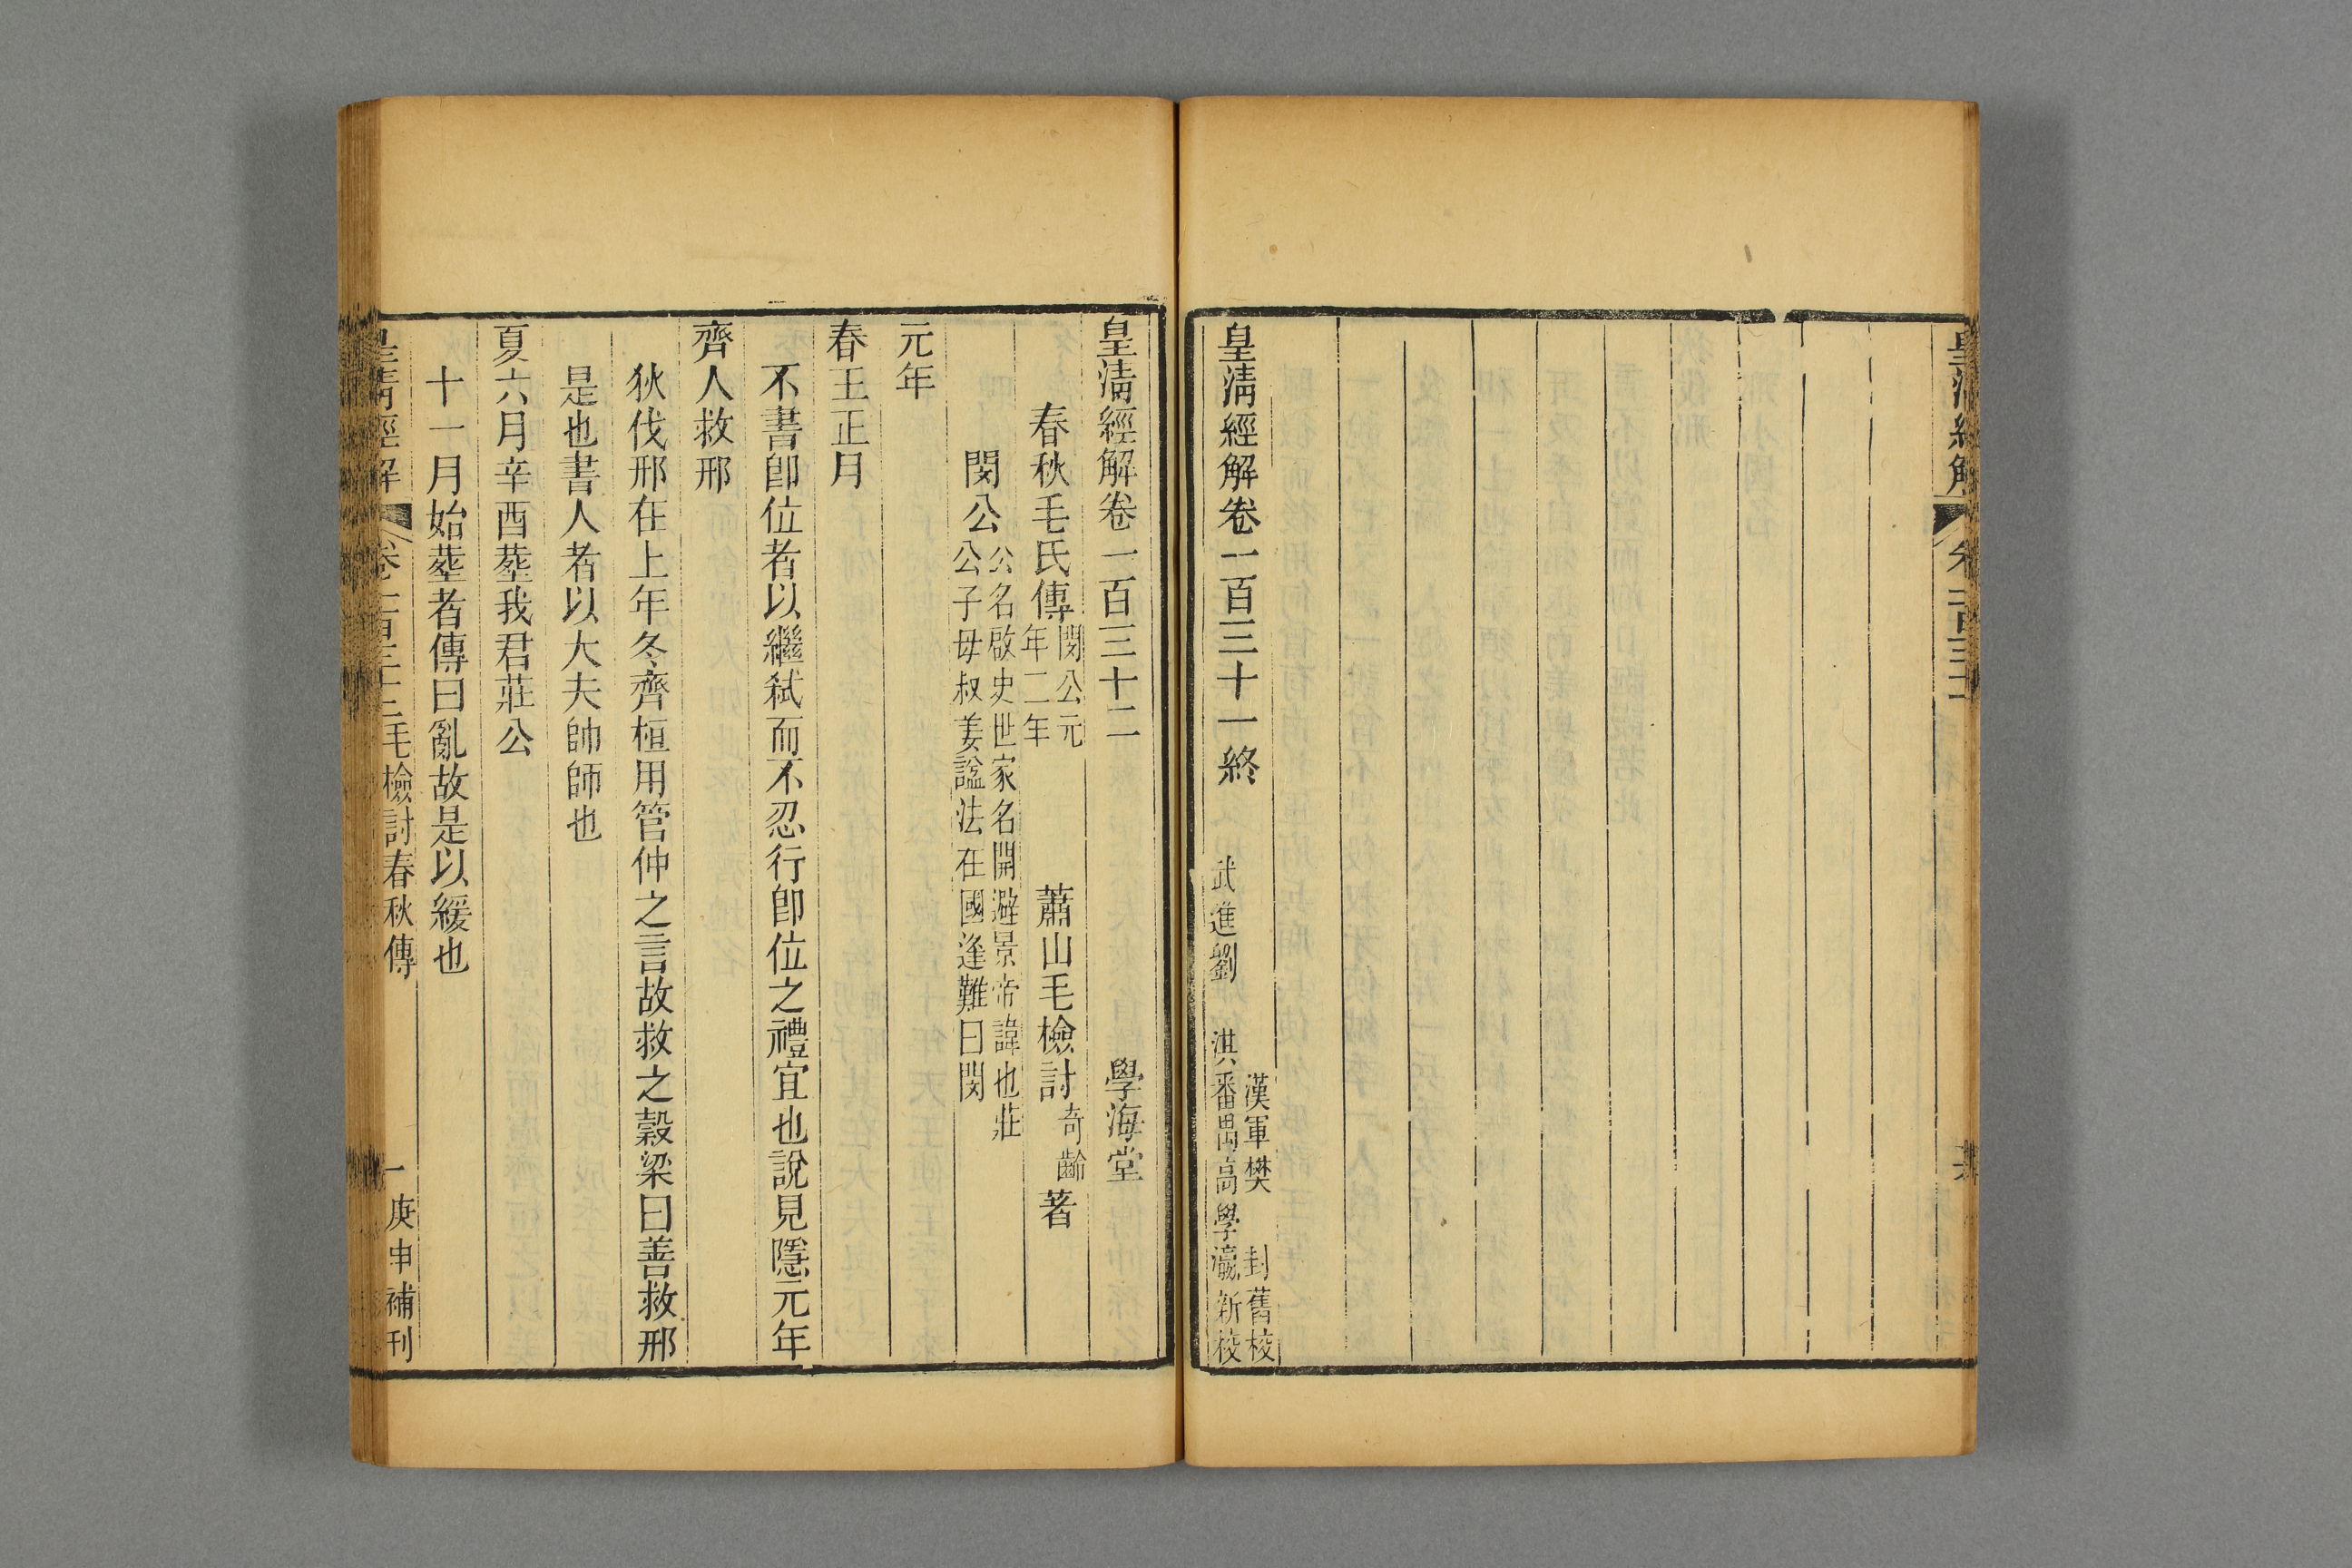 皇清經解
卷一百三十一
皇清經解卷一百三十一終
漢軍樊封舊校
武進劉淇番禺高學瀛新校
皇清經解卷一百三十二
學海堂
春秋毛氏傳閔公元年二年
蕭山毛檢討奇齡著
閔公公名啟史世家名開避景帝諱也莊公子母叔姜諡法在國逢難曰閔
元年
春王正月
不書卽位者以繼弒而不忍行卽位之禮宜也說見隱元年
齊人救邢
狄伐邢在上年冬齊桓用管仲之言故救之穀梁曰善救邢
是也書人者以大夫帥師也
夏六月辛酉葬我君莊公
十一月始葬者傳曰亂故是以緩也
皇清經解
卷一百三十二毛檢討春秋傳
一
庚申補刊